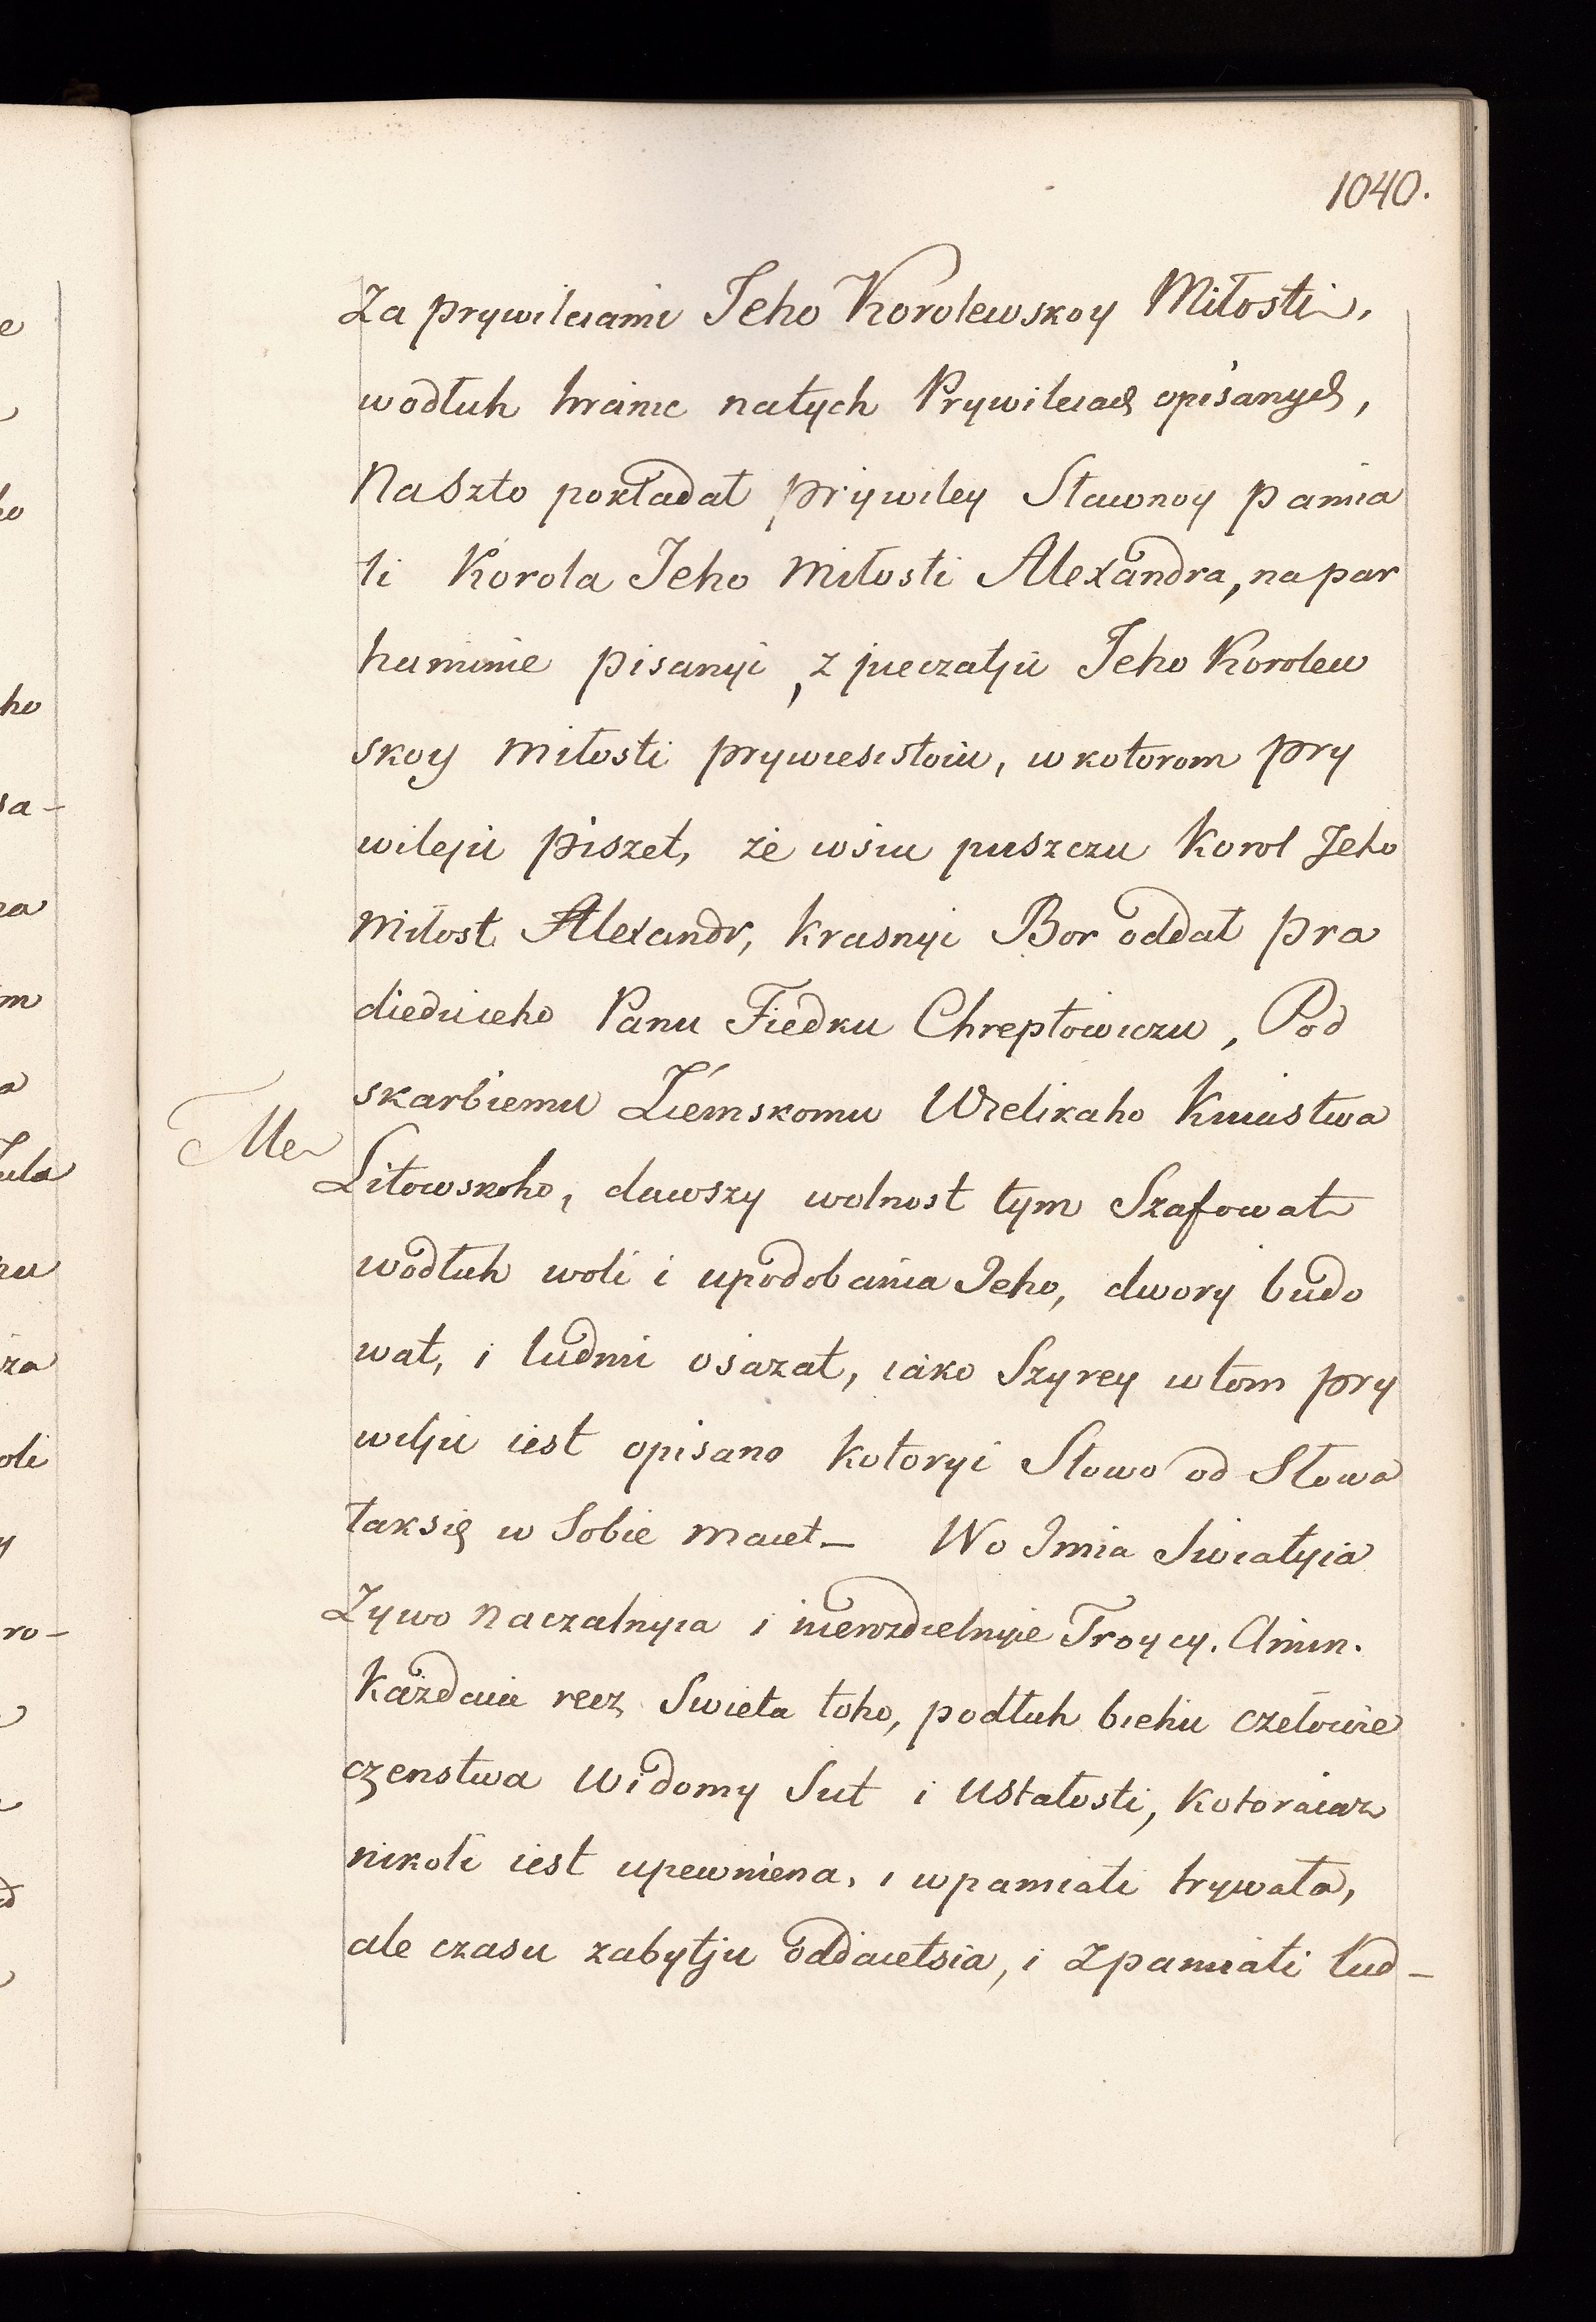 1040.
Za prywileiami Jeho Korolewskoy Miłosti,
wodłuh hranic natych Prywileiach opisanych,
Naszto pokładał prywiley Sławnoy pamia
ti Korola Jeho Miłosti Alexandra, na par
haminie pisanyi, z pieczatju Jeho Korolew
skoy miłosti prywiesistoiu, w kotorom pry
wileju piszet, że wsiu puszczu Korol Jeho
Miłost Alexandr, Krasnyi Bor oddał pra
diedu ieho Panu Fiedku Chreptowiczu, Pod
skarbiemu Ziemskomu Welikaho Kniastwa
Me
Litowskoho, dawszy wolnost tym Szafowat
wodłuh woli i upodobania Jeho, dwory budo
wat, i ludmi osazat, iako Szyrey w tom pry
wilju iest opisano kotoryi Słowo od Słowa
tak się w Sobie maiet _ Wo Imia Swiatyia
Zywo naczalnyia i nierozdielnyie Troycy. Amin.
Każdaia recz Swieta toho, podłuh biehu człowie
czenstwa widomy Sut i ustałosti, kotoraiaz
nikoli iest upewniena, i w pamiati trywała,
ale czasu zabytju oddaietsia, i z pamiati lud_